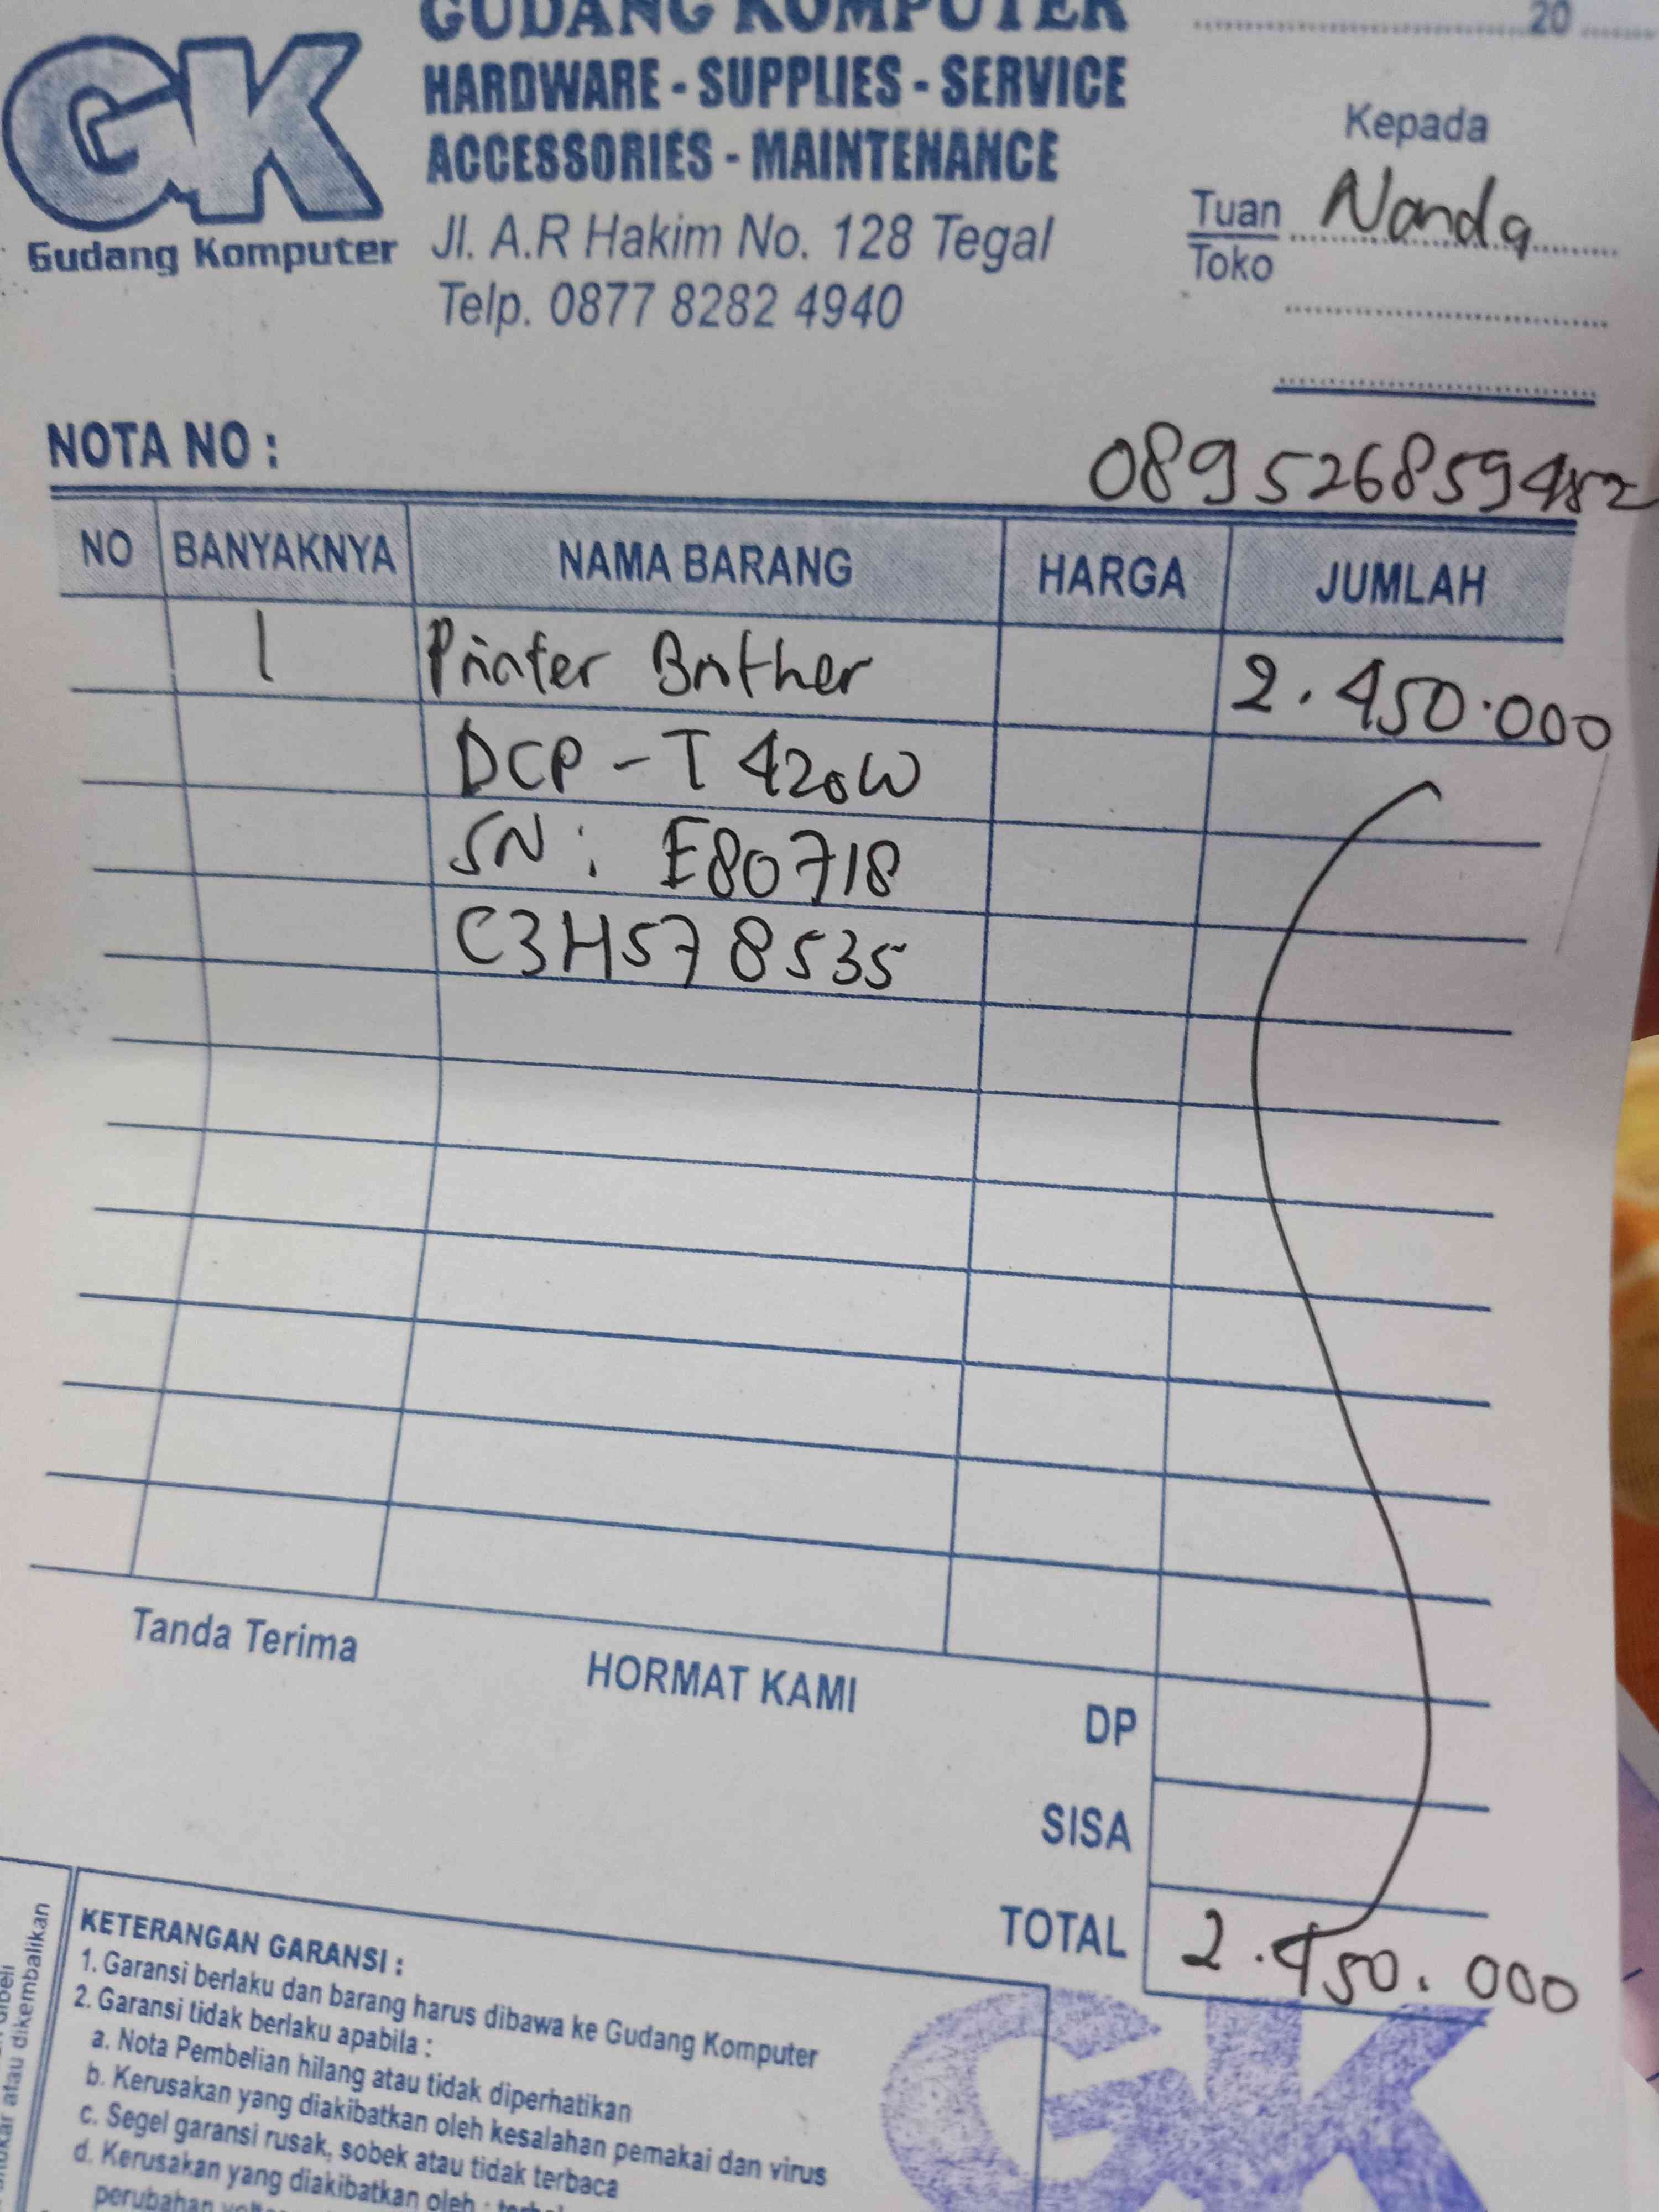 GUDANG KOMPUTER
HARDWARE - SUPPLIES - SERVICE
ACCESSORIES - MAINTENANCE
Jl. A.R Hakim No. 128 Tegal
Telp. 0877 8282 4940
GK
Gudang Komputer
20
Kepada
Tuan Nanda
Toko
NOTA NO :
089526859482
NO BANYAKNYA NAMA BARANG HARGA JUMLAH
1 Printer Brother 2.450.000
DCP - T420W
SN : E80718
C3H578535
Tanda Terima
HORMAT KAMI
DP
SISA
TOTAL 2.450.000
KETERANGAN GARANSI :
1. Garansi berlaku dan barang harus dibawa ke Gudang Komputer
2. Garansi tidak berlaku apabila :
a. Nota Pembelian hilang atau tidak diperhatikan
b. Kerusakan yang diakibatkan oleh kesalahan pemakai dan virus
c. Segel garansi rusak, sobek atau tidak terbaca
d. Kerusakan yang diakibatkan oleh :
perubahan
atau dikembalikan
GK